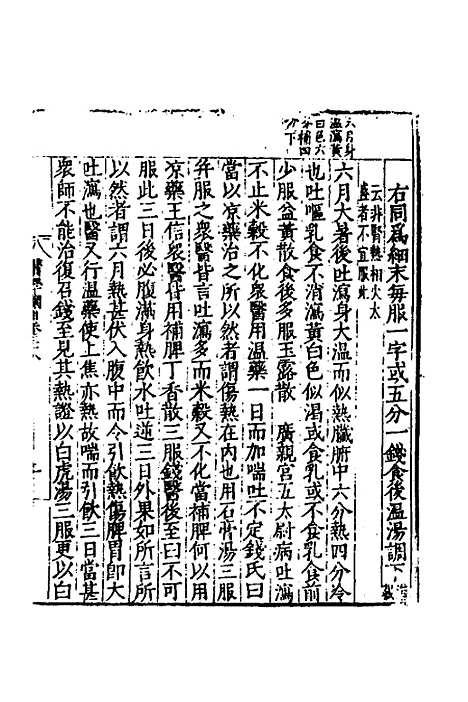 六月身
温瀉黃
白色六
分補四
分下
右同為細末每服一字或五分一錢食後温湯調下
云非腎熱相火太
盛者不宜服此
六月大暑後吐瀉身大温而似熱臟腑中六分熱四分冷
也吐嘔乳食不消瀉黃白色似渴或食乳或不食乳食前
少服益黃散食後多服玉露散 廣親宮五太尉病吐瀉
不止米穀不化衆醫用温藥一日而加喘吐不定錢氏曰
當以凉藥治之所以然者謂傷熱在内也用石膏湯三服
并服之衆醫皆言吐瀉多而米穀又不化當補脾何以用
凉藥王信衆醫皆用補脾丁香散三服錢醫後至曰不可
服此三日後必腹滿身熱飲水吐逆三日外果如所言所
以然者謂六月熱甚伏入腹中而令引飲熱傷脾胃即大
吐瀉也醫又行温藥使上焦亦熱故喘而引飲三日當甚
衆師不能治復召錢至見其熱證以白虎湯三服更以白